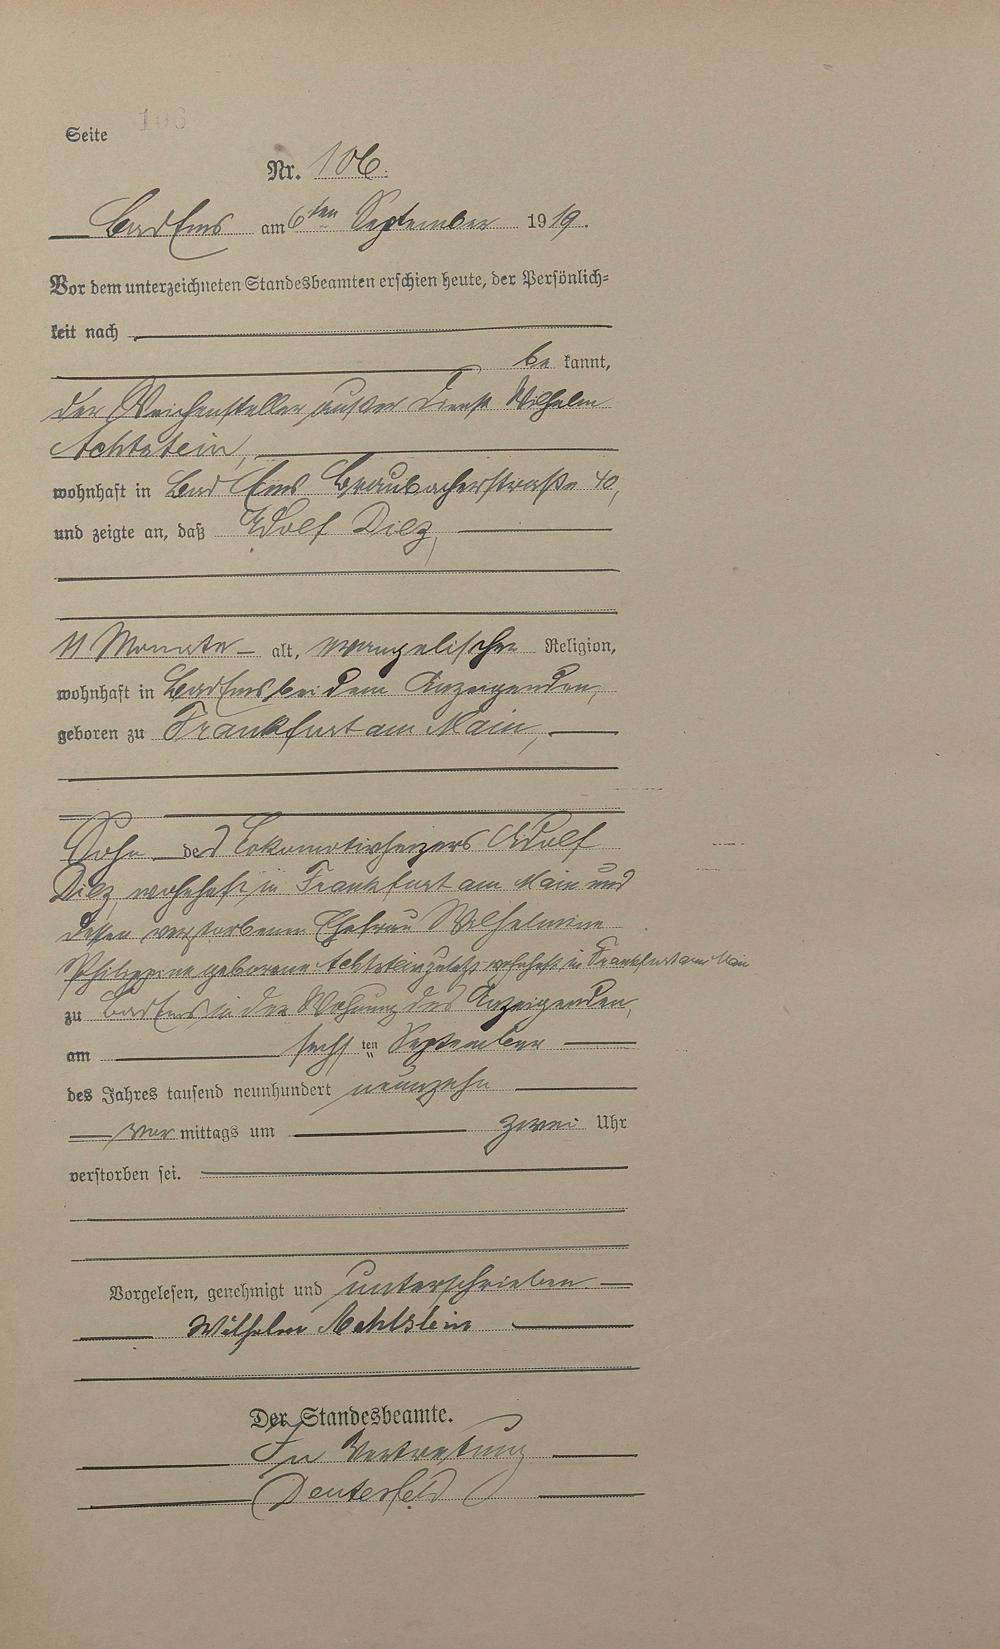 Seite 106
Nr. 106.
Bad Ems am 6ten September 1919.
Vor dem unterzeichneten Standesbeamten erschien heute, der Persönlich-
keit nach
be kannt,
der Weichensteller außer Dienst Wilhelm
Achtstein,
wohnhaft in Bad Ems Braubacherstraße 40,
und zeigte an, daß Adolf Dilz,
11 Monate alt, evangelischer Religion,
wohnhaft in Bad Ems bei dem Anzeigenden,
geboren zu Frankfurt am Main,
Sohn des Lokomotivheizers Adolf
Dilz, wohnhaft in Frankfurt am Main und
dessen verstorbenen Ehefrau Wilhelmine
Philippine geborene Achtstein zuletzt wohnhaft in Frankfurt am Main
zu Bad Ems in der Wohnung des Anzeigenden,
am sechsten September
des Jahres tausend neunhundert neunzehn
vor mittags um zwei Uhr
verstorben sei.
Vorgelesen, genehmigt und unterschrieben.
Wilhelm Achtstein
Der Standesbeamte.
In Vertretung